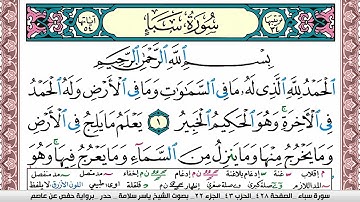 سُورَةُ سَبَإٍ
بِسْمِ ٱللَّهِ ٱلرَّحْمَٰنِ ٱلرَّحِيمِ
ٱلْحَمْدُ لِلَّهِ ٱلَّذِى لَهُۥ مَا فِى ٱلسَّمَٰوَٰتِ وَمَا فِى ٱلْأَرْضِ وَلَهُ ٱلْحَمْدُ
فِى ٱلْءَاخِرَةِ ۚ وَهُوَ ٱلْحَكِيمُ ٱلْخَبِيرُ ١ يَعْلَمُ مَا يَلِجُ فِى ٱلْأَرْضِ
وَمَا يَخْرُجُ مِنْهَا وَمَا يَنزِلُ مِنَ ٱلسَّمَآءِ وَمَا يَعْرُجُ فِيهَا ۚ وَهُوَ
سورة سبأ . الصفحة ٤٢٨ . الحزب ٤٣ . الجزء ٢٢ . بصوت الشيخ ياسر سلامة . حدر . برواية حفص عن عاصم